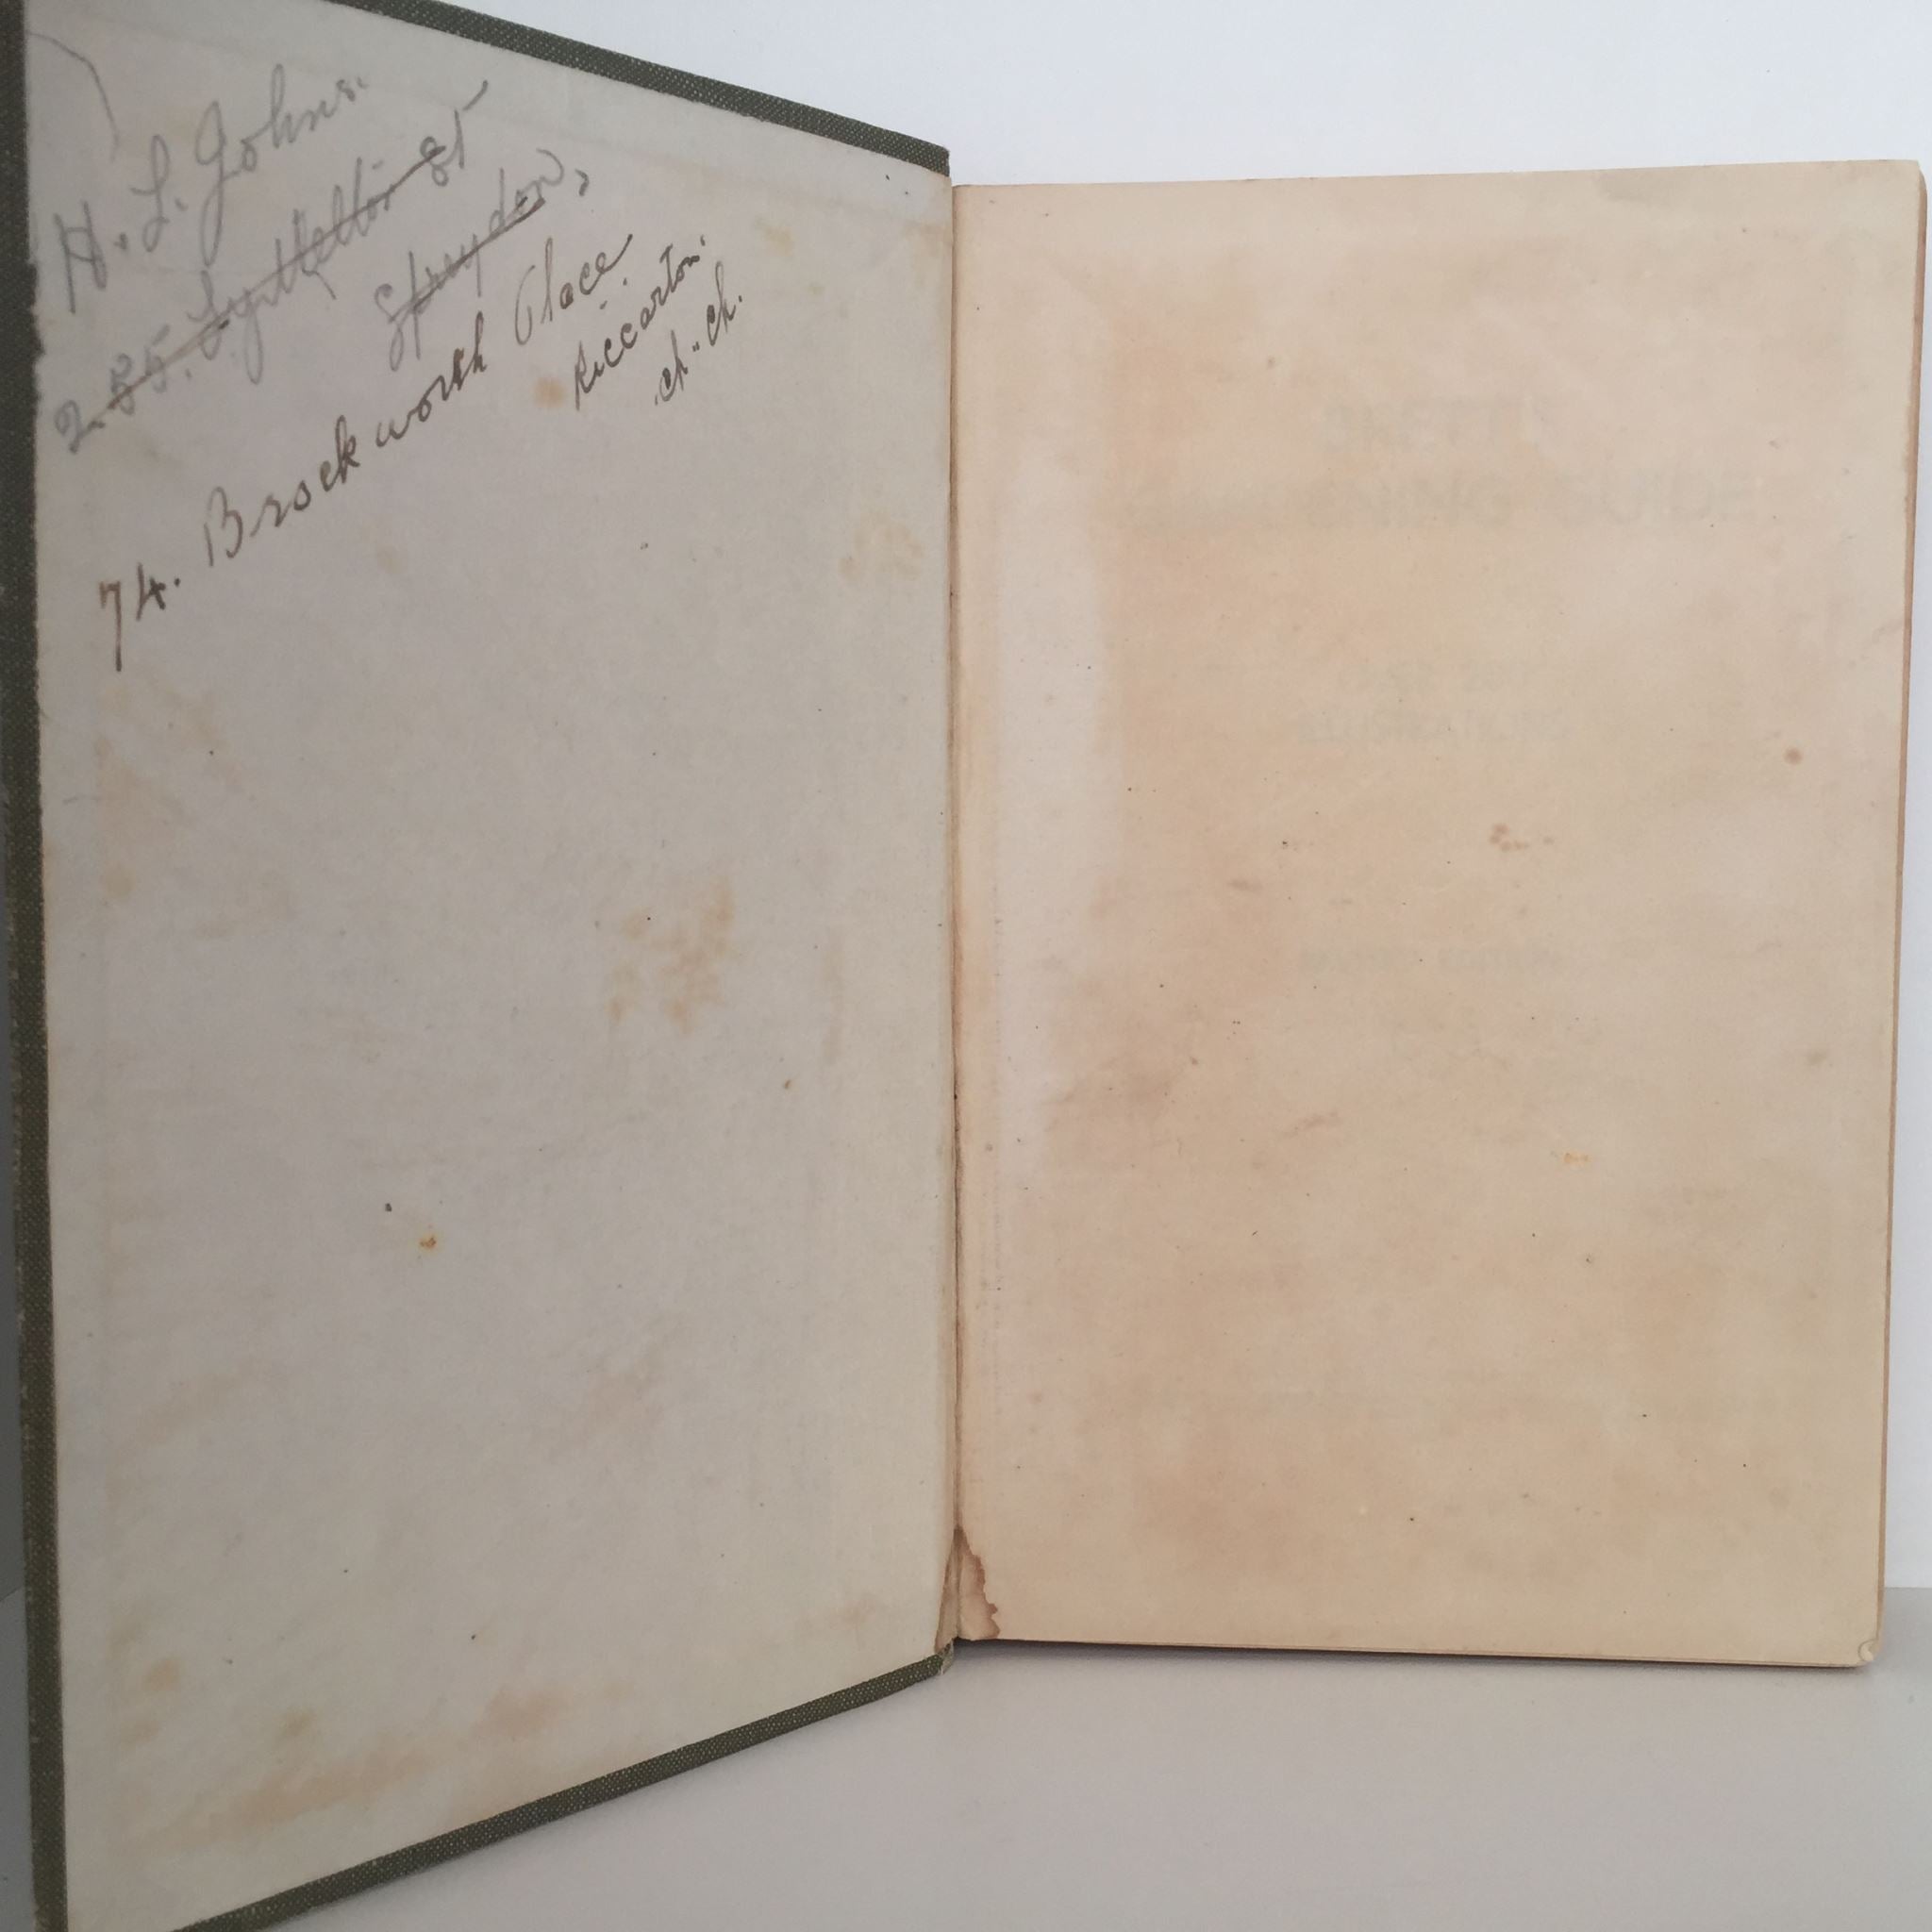 H. L. Johns.
235. Lyttelton St
Spreydon,
74. Brockworth Place
Riccarton.
Ch. Ch.